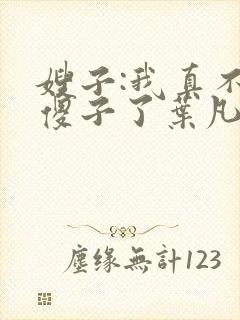 嫂子:我真不
傻子了葉凡
塵缘無計123